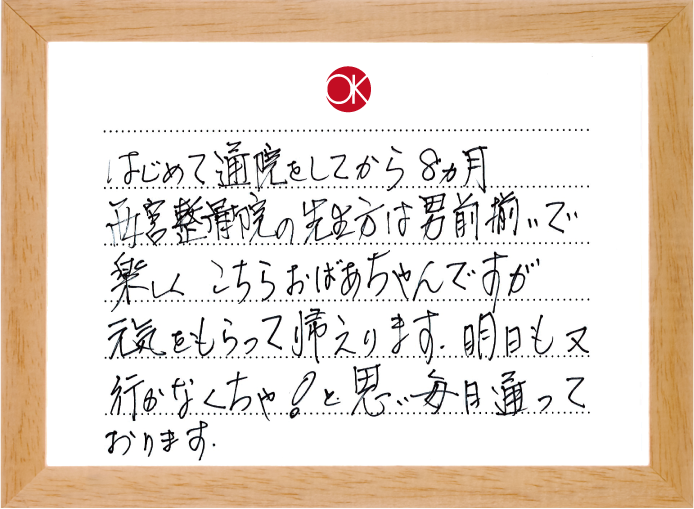 OK
はじめて通院をしてから8カ月
西宮整骨院の先生方は男前揃いで
楽しく こちらおばあちゃんですが
元気をもらって帰えります.明日も又
行かなくちゃ!と思い毎日通って
おります.